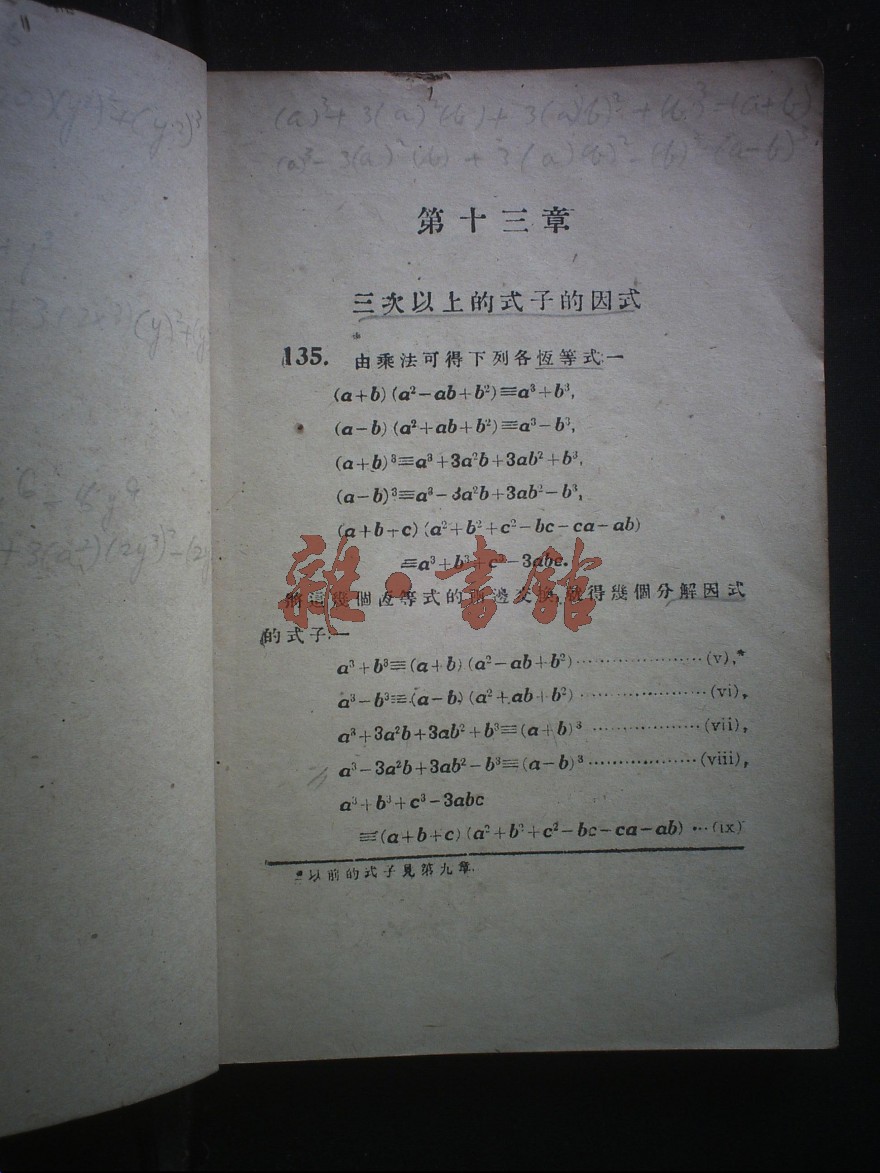 (a)³+3(a)²(b)+3(a)(b)²+(b)³=(a+b)³
(a)³-3(a)²(b)+3(a)(b)²-(b)³=(a-b)³
第十三章
三次以上的式子的因式
135. 由乘法可得下列各恆等式—
(a+b)(a²-ab+b²)≡a³+b³,
(a-b)(a²+ab+b²)≡a³-b³,
(a+b)³≡a³+3a²b+3ab²+b³,
(a-b)³≡a³-3a²b+3ab²-b³,
(a+b+c)(a²+b²+c²-bc-ca-ab)
≡a³+b³+c³-3abc.
雜·書館
將這幾個恆等式的兩邊交換,就得幾個分解因式
的式子:—
a³+b³≡(a+b)(a²-ab+b²)⋯⋯⋯⋯⋯⋯(v),*
a³-b³≡(a-b)(a²+ab+b²)⋯⋯⋯⋯⋯⋯(vi),
a³+3a²b+3ab²+b³≡(a+b)³⋯⋯⋯⋯⋯⋯(vii),
a³-3a²b+3ab²-b³≡(a-b)³⋯⋯⋯⋯⋯⋯(viii),
a³+b³+c³-3abc
≡(a+b+c)(a²+b²+c²-bc-ca-ab)⋯(ix)
*以前的式子見第九章.